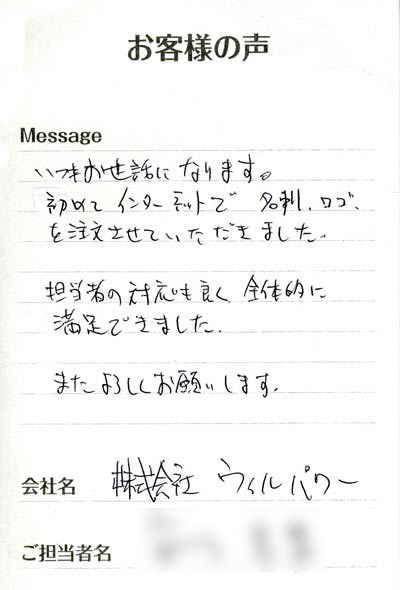 お客様の声
Message
いつもお世話になります。
初めてインターネットで 名刺、ロゴ、
を注文させていただきました。
担当者の対応も良く 全体的に
満足できました。
またよろしくお願いします。
会社名 株式会社 ウィルパワー
ご担当者名